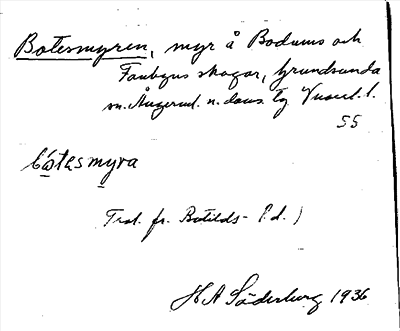 Botesmyren, myr å Bodums och
Faubyns skogar, Grundsunda
sn. Ångerml. n. doms. tg Vnorrl. l.
55
bótesmyra
Trol. fr. Botilds- (d.)
H A Söderberg 1936